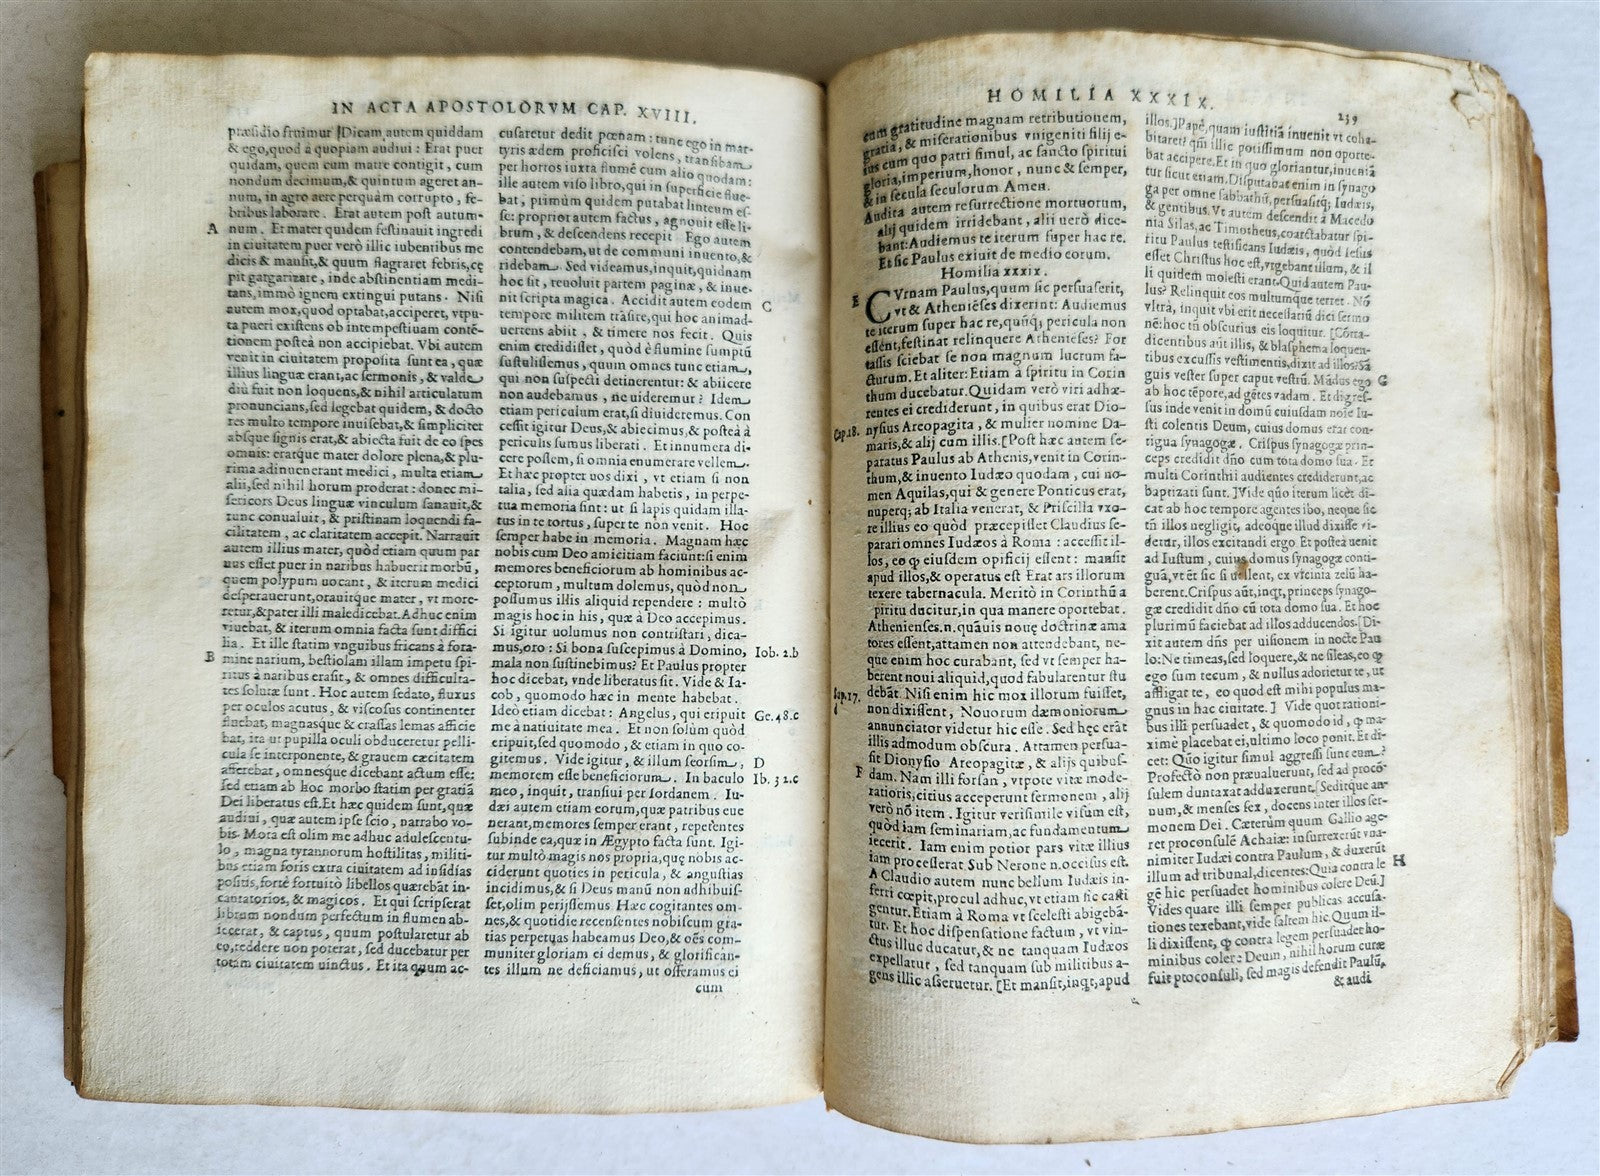 IN ACTA APOSTOLORVM CAP. XVIII.
præsidio fruimur ]Dicam autem quiddam
& ego,quod à quopiam audiui : Erat puer
quidam, quem cum matre contigit , cum
nondum decimum,& quintum ageret an-
num, in agro aere perquàm corrupto , fe-
bribus laborare. Erat autem post autum-
A
num . Et mater quidem festinauit ingredi
in ciuitatem puer verò illic iubentibus me
dicis & mansit,& quum flagraret febris,cę
pit gargarizare , inde abstinentiam medi-
tans,immò ignem extingui putans . Nisi
autem mox,quod optabat,acciperet, vtpu-
ta pueri existens ob intempestiuam contē-
tionem posteà non accipiebat. Vbi autem
venit in ciuitatem proposita sunt ea , quæ
illius linguæ erant,ac sermonis , & valde
diù fuit non loquens,& nihil articulatum
pronuncians,sed legebat quidem, & docto
res multo tempore inuisebat,& simpliciter
absque signis erat,& abiecta fuit de eo spes
omnis: eratque mater dolore plena,& plu-
rima adinuenerant medici , multa etiam
alii,sed nihil horum proderat : donec mi-
sericors Deus linguæ vinculum sanauit,&
tunc conualuit , & pristinam loquendi fa-
cilitatem , ac claritatem accepit. Narrauit
autem illius mater, quòd etiam quum par
uus esset puer in naribus habuerit morbū ,
quem polypum uocant , & iterum medici
desperauerunt,orauitque mater , vt more-
retur,&pater illi maledicebat.Adhuc enim
viuebat, & iterum omnia facta sunt diffici
lia . Et ille statim vnguibus fricans à fora-
B
mine narium, bestiolam illam impetu spi-
ritus à naribus erasit , & omnes difficulta-
tes solutæ sunt . Hoc autem sedato, fluxus
per oculos acutus , & viscosus continenter
fluebat, magnasque & crassas lemas afficie
bat, ita ut pupilla oculi obduceretur pelli-
cula se interponente, & grauem cæcitatem
afferebat, omnesque dicebant actum esse:
sed etiam ab hoc morbo statim per gratiā
Dei liberatus est.Et hæc quidem sunt,quæ
audiui , quæ autem ipse scio , narrabo vo-
bis. Mota est olim me adhuc adulescentu-
lo , magna tyrannorum hostilitas , militi-
bus etiam foris extra ciuitatem ad insidias
positis,fortè fortuitò libellos quærebāt in-
cantatorios, & magicos . Et qui scripserat
librum nondum perfectum in flumen ab-
iecerat , & captus , quum postularetur ab
eo,reddere non poterat , sed ducebatur per
totam ciuitatem uinctus . Et ita quum ac-
cusaretur dedit pœnam : tunc ego in mar-
tyris ædem proficisci volens , transibam
per hortos iuxta flumē cum alio quodam:
ille autem viso libro,qui in superficie flue-
bat , primùm quidem putabat linteum es-
se: proprior autem factus , agnouit esse li-
brum , & descendens recepit . Ego autem
contendebam,ut de communi inuento,&
ridebam . Sed videamus,inquit,quidnam
hoc sit , reuoluit partem paginæ , & inue-
nit scripta magica. Accidit autem eodem
C
tempore militem trāsire,qui hoc animad-
uertens abiit , & timere nos fecit . Quis
enim credidisset , quòd è flumine sumptū
sustulissemus , quum omnes tunc etiam ,
qui non suspecti detinerentur: & abiicere
non audebamus , ne uideremur ? Idem
etiam periculum erat,si diuideremus. Con
cessit igitur Deus,& abiecimus,& posteà à
periculis sumus liberati . Et innumera di-
cere possem, si omnia enumerare vellem .
Et hæc propter uos dixi , vt etiam si non
talia , sed alia quædam habetis , in perpe-
tua memoria sint : ut si lapis quidam illa-
tus in te tortus , super te non venit . Hoc
semper habe in memoria . Magnam hæc
nobis cum Deo amicitiam faciunt:si enim
memores beneficiorum ab hominibus ac-
ceptorum , multum dolemus, quòd non
possumus illis aliquid rependere : multò
magis hoc in his , quæ à Deo accepimus.
Si igitur uolumus non contristari , dica-
mus,oro : Si bona suscepimus à Domino,
Iob. 2.b
mala non sustinebimus? Et Paulus propter
hoc dicebat, vnde liberatus sit . Vide & Ia-
cob , quomodo hæc in mente habebat .
Ideò etiam dicebat : Angelus , qui eripuit
Ge. 48.c
me à natiuitate mea . Et non solùm quòd
eripuit,sed quomodo , & etiam in quo co-
gitemus . Vide igitur , & illum seorsim ,
D
memorem esse beneficiorum . In baculo
Ib. 32.c
meo , inquit, transiui per Iordanem . Iu-
dæi autem etiam eorum,quæ patribus eue
nerant,memores semper erant , repetentes
subinde ea,quæ in Ægypto facta sunt. Igi-
tur multò magis nos propria,quę nobis ac-
ciderunt quoties in pericula , & angustias
incidimus,& si Deus manū non adhibuis-
set,olim perijssemus . Hæc cogitantes om-
nes,& quotidie recensentes nobiscum gra-
tias perpetuas habeamus Deo,& oēs com-
muniter gloriam ei demus , & glorifican-
tes illum ne deficiamus , ut offeramus ei
cum
HOMILIA XXXIX.
239
cum gratitudine magnam retributionem,
gratia , & miserationibus vnigeniti filij e-
ius cum quo patri simul, ac sancto spiritui
gloria,imperium,honor , nunc & semper,
& in secula seculorum Amen.
Audita autem resurrectione mortuorum,
alij quidem irridebant , alii uerò dice-
bant: Audiemus te iterum super hac re.
Et sic Paulus exiuit de medio eorum.
Homilia xxxix .
E
CVrnam Paulus,quum sic persuaserit,
vt & Atheniēses dixerint: Audiemus
te iterum super hac re,quāq; pericula non
essent,festinat relinquere Athenièses? For
tassis sciebat se non magnum lucrum fa-
cturum. Et aliter: Etiam à spiritu in Corin
thum ducebatur. Quidam verò viri adhæ-
rentes ei crediderunt , in quibus erat Dio-
Cap.18.
nysius Areopagita , & mulier nomine Da-
maris,& alij cum illis.[Post hæc autem se-
paratus Paulus ab Athenis,venit in Corin-
thum,& inuento Iudæo quodam , cui no-
men Aquilas,qui & genere Ponticus erat,
nuperq; ab Italia venerat, & Priscilla vxo-
re illius eo quòd præcepisset Claudius se-
parari omnes Iudæos à Roma : accessit il-
los, eo ꝙ eiusdem opificij essent : mansit
apud illos,& operatus est Erat ars illorum
texere tabernacula. Meritò in Corinthū a
piritu ducitur, in qua manere oportebat.
Athenienses.n.quāuis nouę doctrinæ ama
tores essent,attamen non attendebant, ne-
que enim hoc curabant, sed vt semper ha-
berent noui aliquid,quod fabularentur stu
Cap.17.
debāt. Nisi enim hic mox illorum fuisset,
non dixissent , Nouorum dæmoniorum
annunciator videtur hic esse . Sed hęc erāt
illis admodum obscura . Attamen persua-
sit Dionysio Areopagitæ , & alijs quibus-
F
dam. Nam illi forsan , vtpote vitæ mode-
ratioris,citius acceperunt sermonem , alij
verò nō item . Igitur verisimile visum est,
quòd iam seminariam,ac fundamentum
iecerit . Iam enim potior pars vitæ illius
iam processerat Sub Nerone n.occisus est.
A Claudio autem nunc bellum Iudæis in-
ferri cœpit,procul adhuc,vt etiam sic casti
gentur. Etiam à Roma vt scelesti abigebā-
tur. Et hoc dispensatione factum , vt vin-
ctus illuc ducatur,& ne tanquam Iudæos
expellatur , sed tanquam sub militibus a-
gens illic asseruetur. [Et mansit,inqt,apud
illos.]Papè,quam iustitiā inuenit vt coha-
bitaret? qm̄ illic potissimum non oporte-
bat accipere.Et in quo gloriantur,inueniā
tur sicut etiam.Disputabat enim in synago
ga per omne sabbathū, persuasitq; Iudæis,
& gentibus. Vt autem descendit à Macedo
nia Silas, ac Timotheus,coarctabatur spi-
ritu Paulus testificans Iudæis, quòd Iesus
esset Christus hoc est,vrgebant illum, & il
li quidem molesti erant.Quid autem Pau-
lus? Relinquit eos multumque terret. Nō
vltrà, inquit vbi erit necessariū dici sermo
nē:hoc tn̄ obscurius eis loquitur. [Cōtra-
dicentibus aūt illis, & blasphema loquen-
tibus excussis vestimentis,dixit ad illos:Sā
guis vester super caput vestrū. Mūdus ego
G
ab hoc tēpore,ad gētes vadam . Et digres-
sus inde venit in domū cuiusdam noīe Iu-
sti colentis Deum, cuius domus erat con-
tigua synagogæ . Crispus synagogæ prin-
ceps credidit dn̄o cum tota domo sua . Et
multi Corinthii audientes crediderunt,ac
baptizati sunt. ]Vide quō iterum licèt di-
cat ab hoc tempore agentes ibo, neque sic
tn̄ illos negligit, adeoque illud dixisse vi-
detur, illos excitandi ergo. Et posteà uenit
ad Iustum , cuius domus synagogæ conti-
guā,vt ēt sic si uellent, ex vicinia zelū ha-
berent.Crispus aūt,inqt,princeps synago-
gæ credidit dn̄o cū tota domo sua. Et hoc
plurimū faciebat ad illos adducendos.[Di-
xit autem dn̄s per uisionem in nocte Pau
lo:Ne timeas,sed loquere,& ne sileas,eo ꝙ
ego sum tecum , & nullus adorietur te , ut
affligat te , eo quod est mihi populus ma-
gnus in hac ciuitate. ] Vide quot rationi-
bus illi persuadet , & quomodo id , ꝙ ma-
ximè placebat ei,ultimo loco ponit. Et di-
cet: Quò igitur simul aggressi sunt eum?
Profectò non præualuerunt, sed ad procō-
sulem duntaxat adduxerunt.[Seditque an-
num,& menses sex, docens inter illos ser-
monem Dei . Cæterùm quum Gallio age-
ret proconsulē Achaiæ: insurrexerūt vna-
nimiter Iudæi contra Paulum , & duxerūt
H
illum ad tribunal,dicentes:Quia contra le
gē hic persuadet hominibus colere Deū.]
Vides quare illi semper publicas accusa-
tiones texebant,vide saltem hic Quum il-
li dixissent, ꝙ contra legem persuadet ho-
minibus colere Deum , nihil horum curæ
fuit proconsuli, sed magis defendit Paulū,
& audi